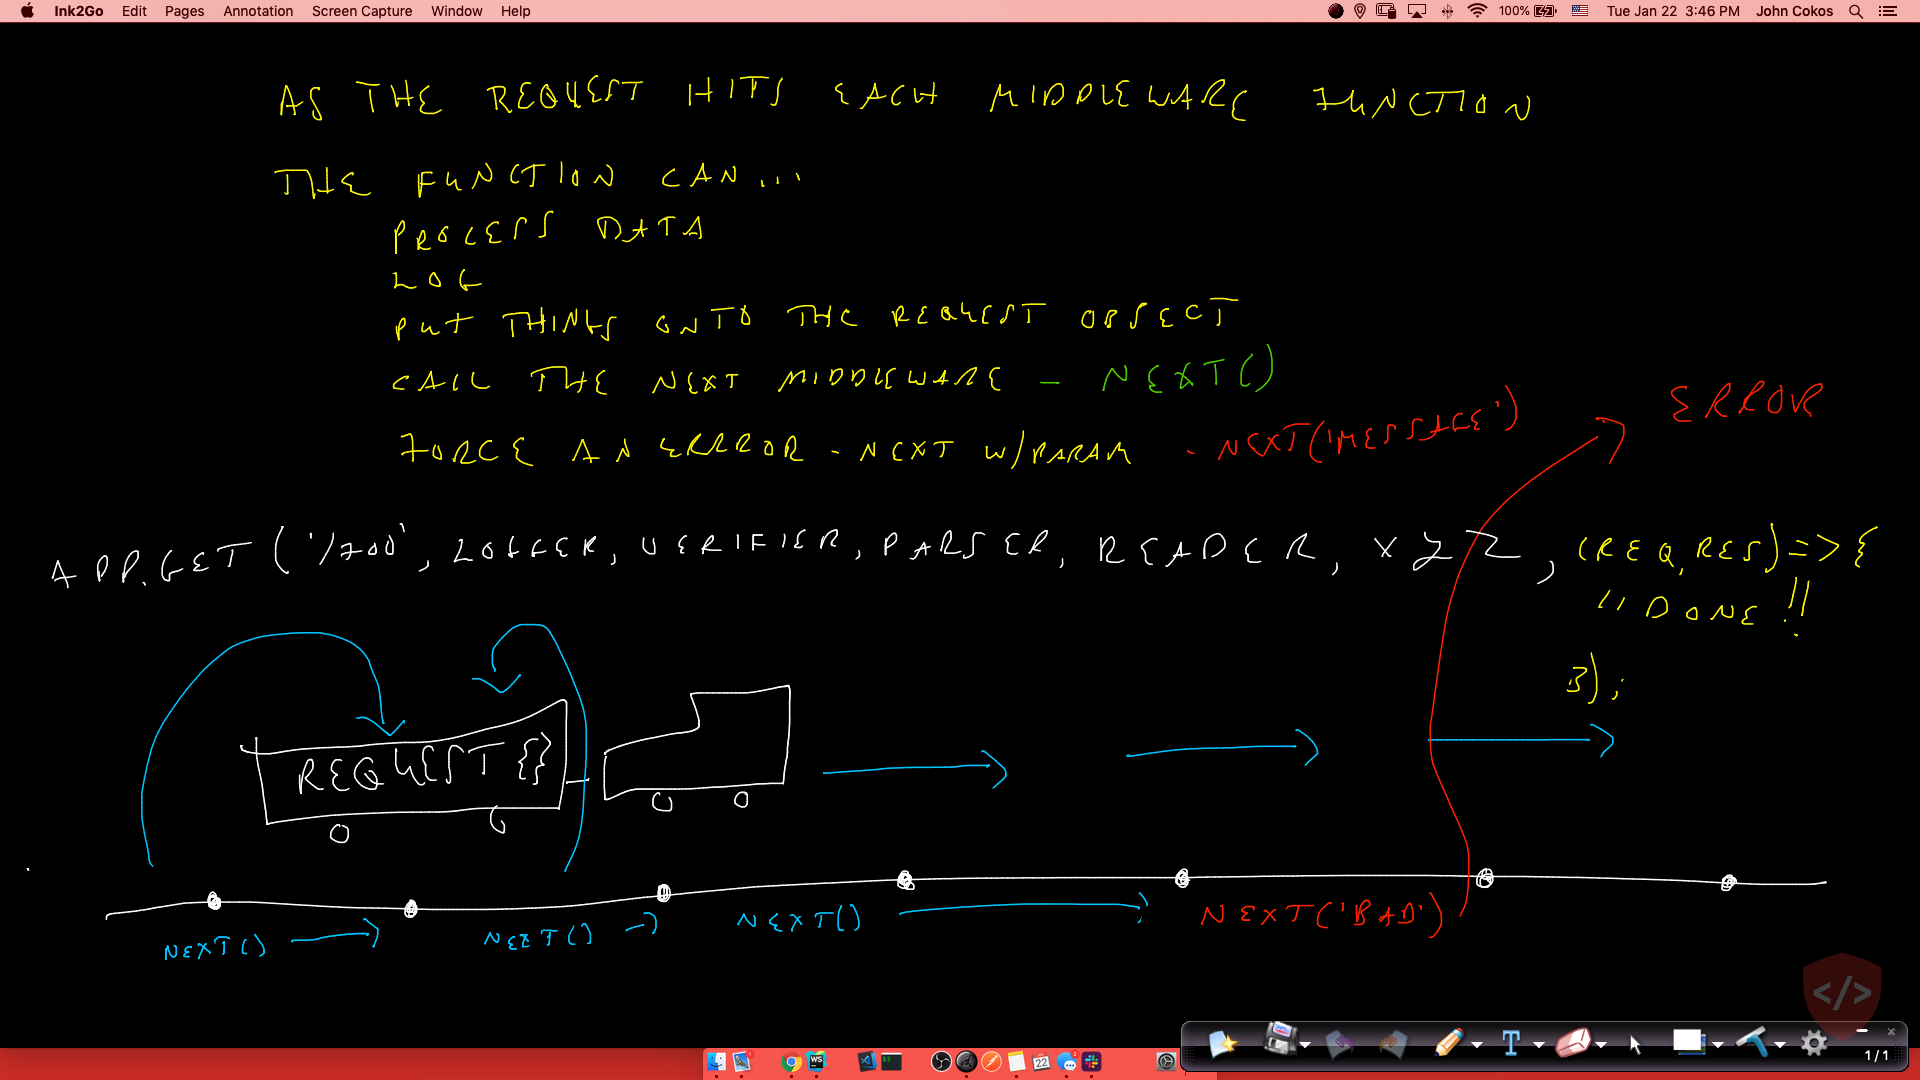 Ink2Go Edit Pages Annotation Screen Capture Window Help 100% Tue Jan 22 3:46 PM John Cokos
AS THE REQUEST HITS EACH MIDDLEWARE FUNCTION
THE FUNCTION CAN...
PROCESS DATA
LOG
PUT THINGS ONTO THE REQUEST OBJECT
CALL THE NEXT MIDDLEWARE - NEXT()
FORCE AN ERROR - NEXT W/PARAM - NEXT('MESSAGE')
ERROR
APP.GET('/FOO', LOGGER, VERIFIER, PARSER, READER, XYZ, (REQ, RES) => {
// DONE!!
});
REQUEST {}
NEXT() NEXT() NEXT() NEXT('BAD')
</>
1/1